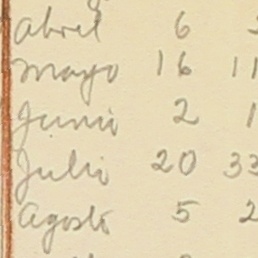 Abril 6
Mayo 16 11
Junio 2 1
Julio 20 33
Agosto 5 2